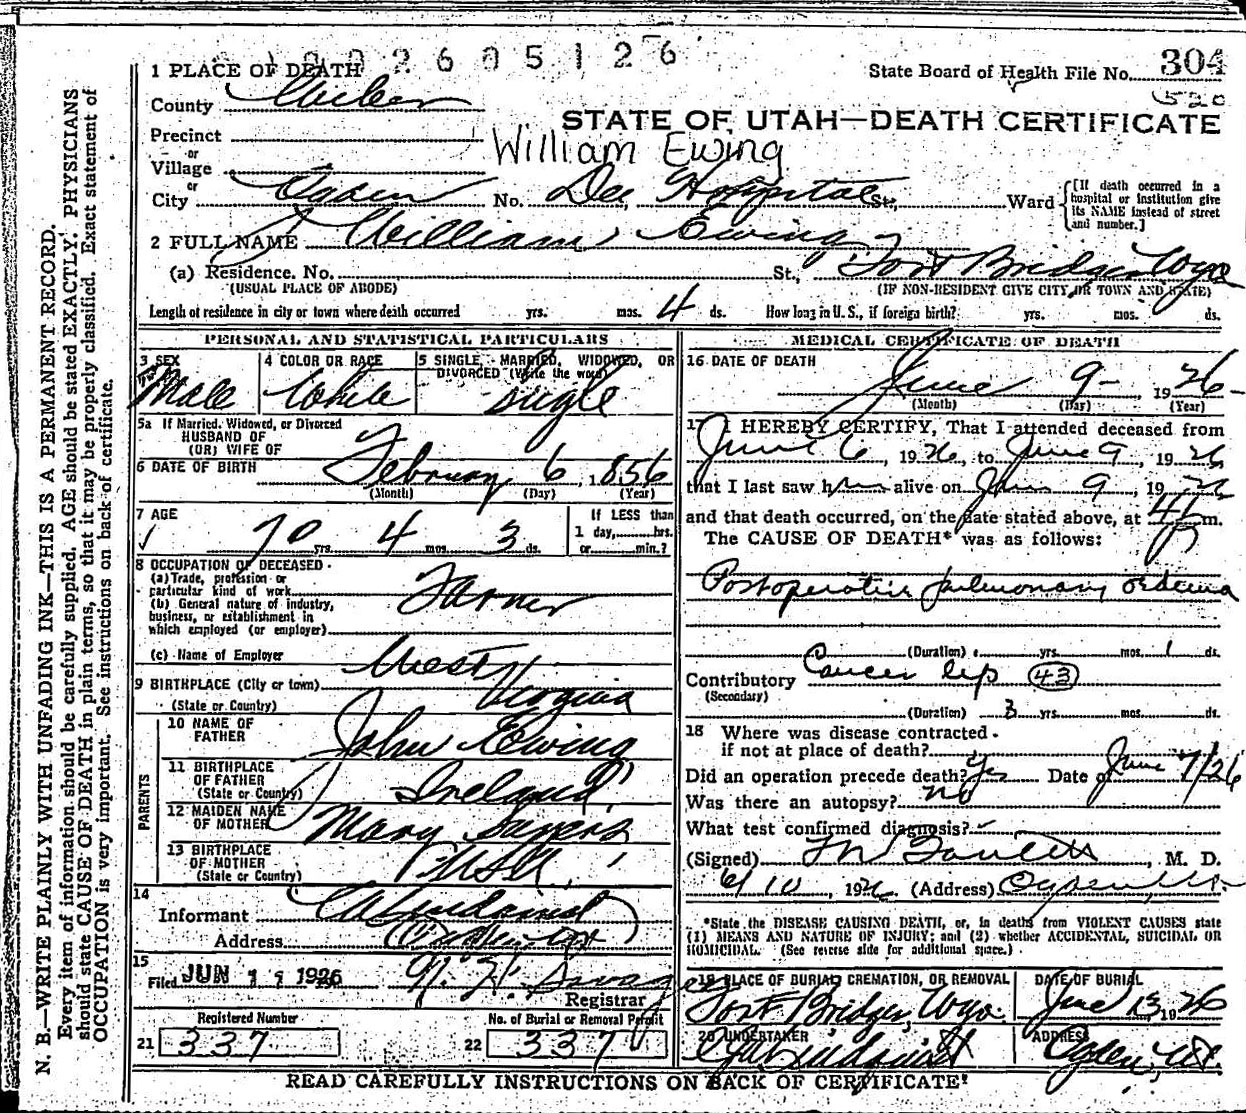 002605126
1 PLACE OF DEATH
State Board of Health File No. 304
520
County Weber
STATE OF UTAH—DEATH CERTIFICATE
Precinct
or
William Ewing
Village
or
City Ogden No. Dee Hospital St., Ward [If death occurred in a hospital or institution give its NAME instead of street and number.]
2 FULL NAME William Ewing
(a) Residence. No. St., Fort Bridger Wyo
(USUAL PLACE OF ABODE) (IF NON-RESIDENT GIVE CITY OR TOWN AND STATE)
Length of residence in city or town where death occurred yrs. mos. 4 ds. How long in U. S., if foreign birth? yrs. mos. ds.
PERSONAL AND STATISTICAL PARTICULARS
3 SEX Male
4 COLOR OR RACE White
5 SINGLE, MARRIED, WIDOWED, OR DIVORCED (Write the word) single
5a If Married, Widowed, or Divorced
HUSBAND OF
(OR) WIFE OF
6 DATE OF BIRTH February 6, 1856
(Month) (Day) (Year)
7 AGE 70 yrs. 4 mos. 3 ds.
If LESS than
1 day, hrs.
or min.?
8 OCCUPATION OF DECEASED
(a) Trade, profession or
particular kind of work Farmer
(b) General nature of industry,
business, or establishment in
which employed (or employer)
(c) Name of Employer
9 BIRTHPLACE (City or town) West Virginia
(State or Country)
PARENTS
10 NAME OF FATHER John Ewing
11 BIRTHPLACE OF FATHER Ireland
(State or Country)
12 MAIDEN NAME OF MOTHER Mary Sayers
13 BIRTHPLACE OF MOTHER
(State or Country)
14
Informant
Address
15
Filed JUN 11 1926
Registrar
Registered Number
21 337
No. of Burial or Removal Permit
22 337
MEDICAL CERTIFICATE OF DEATH
16 DATE OF DEATH
June 9- 1926
(Month) (Day) (Year)
17 I HEREBY CERTIFY, That I attended deceased from
June 6, 1926, to June 9, 1926
that I last saw him alive on June 9, 1926
and that death occurred, on the date stated above, at m.
The CAUSE OF DEATH* was as follows:
Postoperative pulmonary oedema
(Duration) yrs. mos. 1 ds.
Contributory Cancer lip 43
(Secondary)
(Duration) 3 yrs. mos. ds.
18 Where was disease contracted
if not at place of death?
Did an operation precede death? Yes Date of June 7/26
Was there an autopsy? no
What test confirmed diagnosis?
(Signed) , M. D.
6/10, 1926 (Address) Ogden Ut.
*State the DISEASE CAUSING DEATH, or, in deaths from VIOLENT CAUSES state
(1) MEANS AND NATURE OF INJURY; and (2) whether ACCIDENTAL, SUICIDAL OR
HOMICIDAL. (See reverse side for additional space.)
19 PLACE OF BURIAL, CREMATION, OR REMOVAL DATE OF BURIAL
Fort Bridger, Wyo. June 13, 1926
20 UNDERTAKER ADDRESS
Lindquist Ogden, Ut.
READ CAREFULLY INSTRUCTIONS ON BACK OF CERTIFICATE!
N. B.—WRITE PLAINLY WITH UNFADING INK—THIS IS A PERMANENT RECORD.
Every item of information should be carefully supplied. AGE should be stated EXACTLY. PHYSICIANS
should state CAUSE OF DEATH in plain terms, so that it may be properly classified. Exact statement of
OCCUPATION is very important. See instructions on back of certificate.